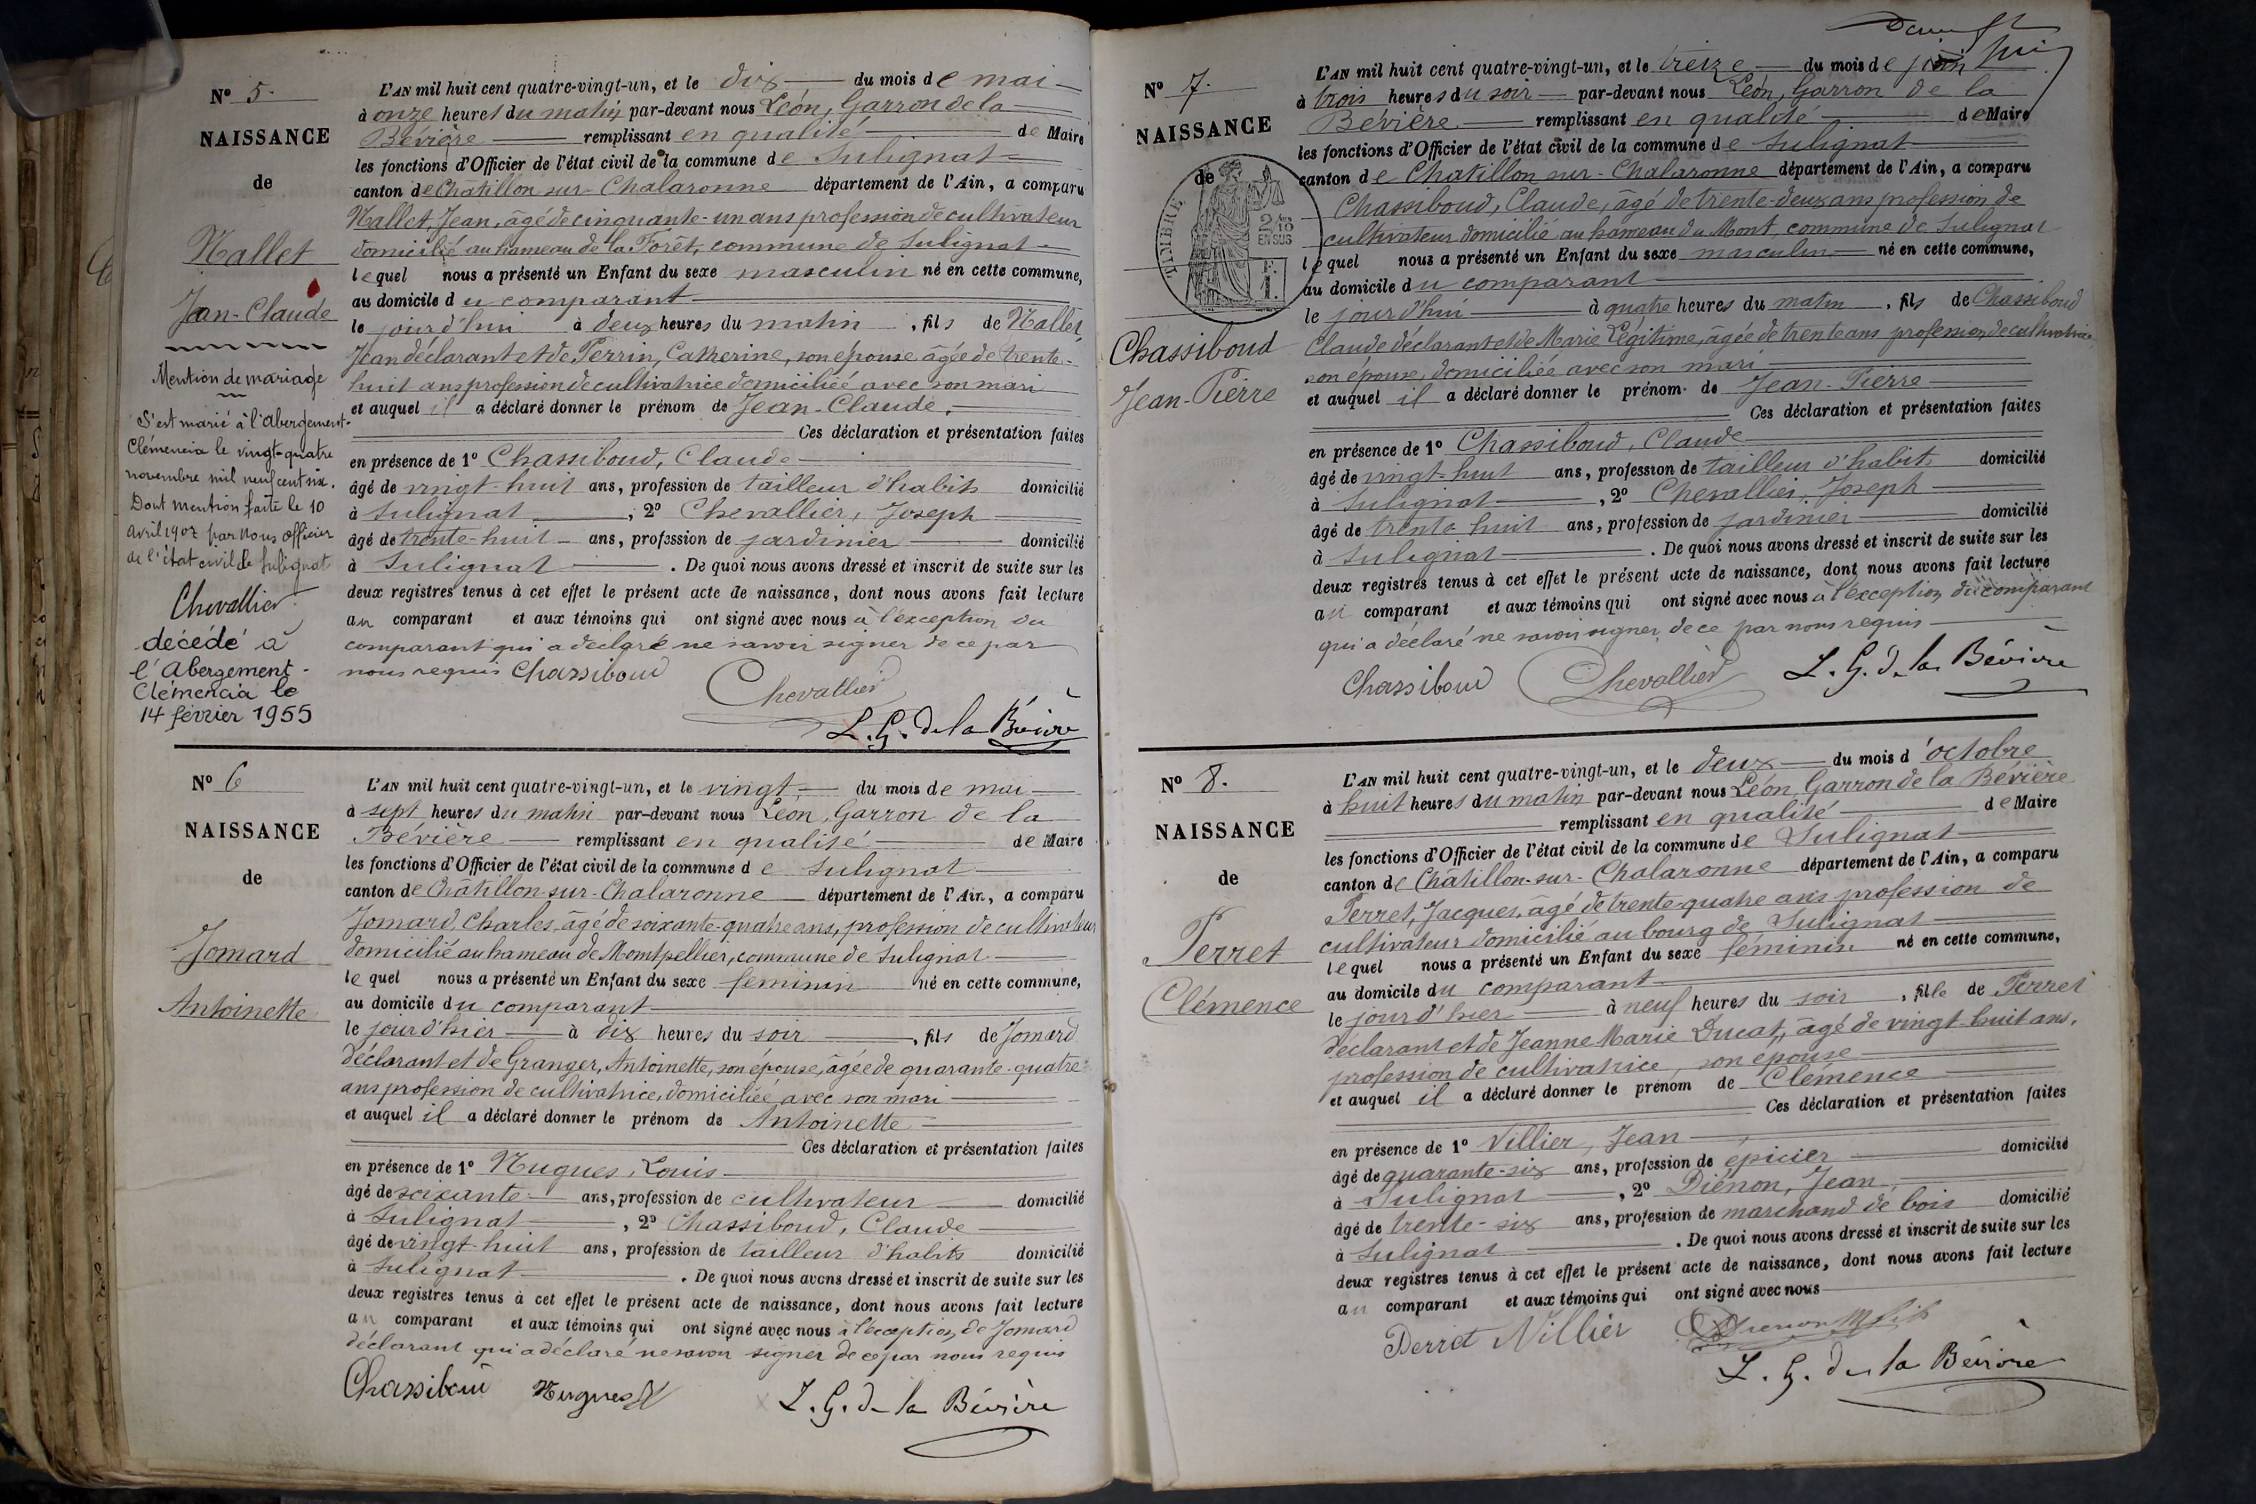 N° 5.
NAISSANCE
de
Nallet
Jean-Claude
Mention de mariage
S'est marié à l'Abergement-
Clémencia le vingt-quatre
novembre mil neuf cent six.
Dont mention faite le 10
avril 1907 par nous officier
de l'état civil de Sulignat
Chevallier
décédé à
l'Abergement-
Clémencia le
14 février 1955
L'AN mil huit cent quatre-vingt-un, et le dix du mois de mai
à onze heures du matin par-devant nous Léon, Garron de la
Bévière remplissant en qualité de Maire
les fonctions d'Officier de l'état civil de la commune de Sulignat
canton de Chatillon sur-Chalaronne département de l'Ain, a comparu
Nallet, Jean, âgé de cinquante-un ans profession de cultivateur
domicilié au hameau de la Forêt, commune de Sulignat
lequel nous a présenté un Enfant du sexe masculin né en cette commune,
au domicile du comparant
le jourd'hui à deux heures du matin, fils de Nallet,
Jean déclarant et de Perrin, Catherine, son épouse âgée de trente-
huit ans profession de cultivatrice domiciliée avec son mari
et auquel il a déclaré donner le prénom de Jean-Claude.
Ces déclaration et présentation faites
en présence de 1° Chassiboud, Claude
âgé de vingt-huit ans, profession de tailleur d'habits domicilié
à Sulignat, 2° Chevallier, Joseph
âgé de trente-huit ans, profession de jardinier domicilié
à Sulignat. De quoi nous avons dressé et inscrit de suite sur les
deux registres tenus à cet effet le présent acte de naissance, dont nous avons fait lecture
au comparant et aux témoins qui ont signé avec nous à l'exception du
comparant qui a déclaré ne savoir signer de ce par
nous requis Chassiboud
Chevallier
L. G. de la Bévière
N° 6
NAISSANCE
de
Jomard
Antoinette
L'AN mil huit cent quatre-vingt-un, et le vingt du mois de mai
à sept heures du matin par-devant nous Léon, Garron de la
Bévière remplissant en qualité de Maire
les fonctions d'Officier de l'état civil de la commune de Sulignat
canton de Châtillon-sur-Chalaronne département de l'Ain, a comparu
Jomard, Charles, âgé de soixante-quatre ans, profession de cultivateur
domicilié au hameau de Montpellier, commune de Sulignat
lequel nous a présenté un Enfant du sexe féminin né en cette commune,
au domicile du comparant
le jourd'hier à dix heures du soir, fils de Jomard
déclarant et de Granger, Antoinette, son épouse, âgée de quarante-quatre
ans profession de cultivatrice, domiciliée avec son mari
et auquel il a déclaré donner le prénom de Antoinette
Ces déclaration et présentation faites
en présence de 1° Nugues, Louis
âgé de soixante ans, profession de cultivateur domicilié
à Sulignat, 2° Chassiboud, Claude
âgé de vingt-huit ans, profession de tailleur d'habits domicilié
à Sulignat. De quoi nous avons dressé et inscrit de suite sur les
deux registres tenus à cet effet le présent acte de naissance, dont nous avons fait lecture
au comparant et aux témoins qui ont signé avec nous à l'exception de Jomard
déclarant qui a déclaré ne savoir signer de ce par nous requis
Chassiboud Nugues
L. G. de la Bévière
N° 7.
NAISSANCE
de
TIMBRE
2/10
EN SUS
F.
1.
Chassiboud
Jean-Pierre
L'AN mil huit cent quatre-vingt-un, et le treize du mois de juin
à trois heures du soir par-devant nous Léon, Garron de la
Bévière remplissant en qualité de Maire
les fonctions d'Officier de l'état civil de la commune de Sulignat
canton de Chatillon sur-Chalaronne département de l'Ain, a comparu
Chassiboud, Claude, âgé de trente-deux ans profession de
cultivateur domicilié au hameau du Mont commune de Sulignat
lequel nous a présenté un Enfant du sexe masculin né en cette commune,
au domicile du comparant
le jourd'hui à quatre heures du matin, fils de Chassiboud
Claude déclarant et de Marie Légitime, âgée de trente ans profession de cultivatrice,
son épouse, domiciliée avec son mari
et auquel il a déclaré donner le prénom de Jean-Pierre
Ces déclaration et présentation faites
en présence de 1° Chassiboud, Claude
âgé de vingt-huit ans, profession de tailleur d'habits domicilié
à Sulignat, 2° Chevallier, Joseph
âgé de trente huit ans, profession de jardinier domicilié
à Sulignat. De quoi nous avons dressé et inscrit de suite sur les
deux registres tenus à cet effet le présent acte de naissance, dont nous avons fait lecture
au comparant et aux témoins qui ont signé avec nous à l'exception du comparant
qui a déclaré ne savoir signer de ce par nous requis
Chassiboud Chevallier L. G. de la Bévière
N° 8.
NAISSANCE
de
Perret
Clémence
L'AN mil huit cent quatre-vingt-un, et le deux du mois d'octobre
à huit heures du matin par-devant nous Léon, Garron de la Bévière
remplissant en qualité de Maire
les fonctions d'Officier de l'état civil de la commune de Sulignat
canton de Châtillon-sur-Chalaronne département de l'Ain, a comparu
Perret, Jacques, âgé de trente-quatre ans profession de
cultivateur domicilié au bourg de Sulignat
lequel nous a présenté un Enfant du sexe féminin né en cette commune,
au domicile du comparant
le jourd'hier à neuf heures du soir, fille de Perret
déclarant et de Jeanne Marie Ducat, âgé de vingt-huit ans,
profession de cultivatrice, son épouse
et auquel il a déclaré donner le prénom de Clémence
Ces déclaration et présentation faites
en présence de 1° Villier, Jean
âgé de quarante-six ans, profession de épicier domicilié
à Sulignat, 2° Diénon, Jean,
âgé de trente-six ans, profession de marchand de bois domicilié
à Sulignat. De quoi nous avons dressé et inscrit de suite sur les
deux registres tenus à cet effet le présent acte de naissance, dont nous avons fait lecture
au comparant et aux témoins qui ont signé avec nous
Perret Villier
L. G. de la Bévière